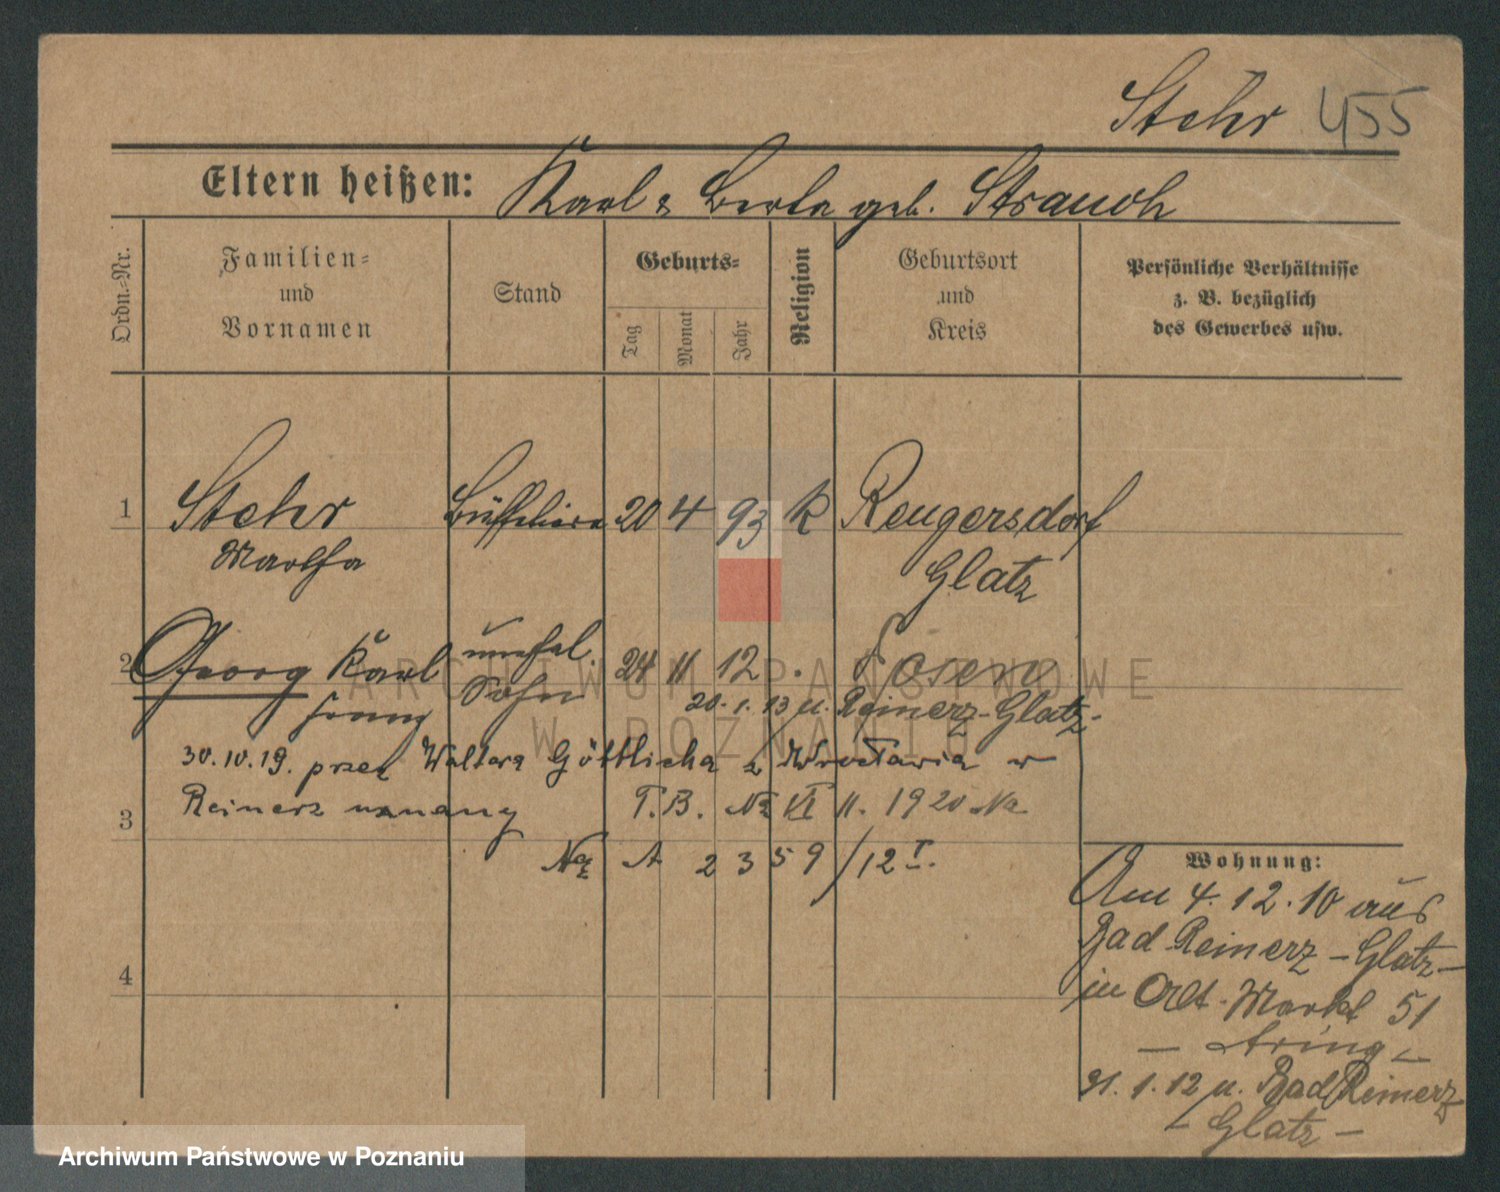 Stehr 455
Eltern heißen: Karl & Berta geb. Strauch
Ordn.-Nr.
Familien-
und
Vornamen
Stand
Geburts-
Tag
Monat
Jahr
Religion
Geburtsort
und
Kreis
Persönliche Verhältnisse
z. B. bezüglich
des Gewerbes usw.
1 Stehr Büffetiere 20 4 93 k Rengersdorf
Martha Glatz
2 Georg Karl unehel. 24 11 12 Posen
Franz Sohn 20.1.13 u. Reinerz-Glatz-
30.10.19. przez Waltera Göttlicha z Wrocławia w
3 Reinerz uznany T.B. Nr VI 11. 1920 Na
Nr A 2359/12 I.
4
Wohnung:
Am 4.12.10 aus
Bad Reinerz-Glatz-
in Alt-Markt 51
21.1.12 u. Bad Reinerz
- Glatz -
ARCHIWUM PAŃSTWOWE
W POZNANIU
Archiwum Państwowe w Poznaniu